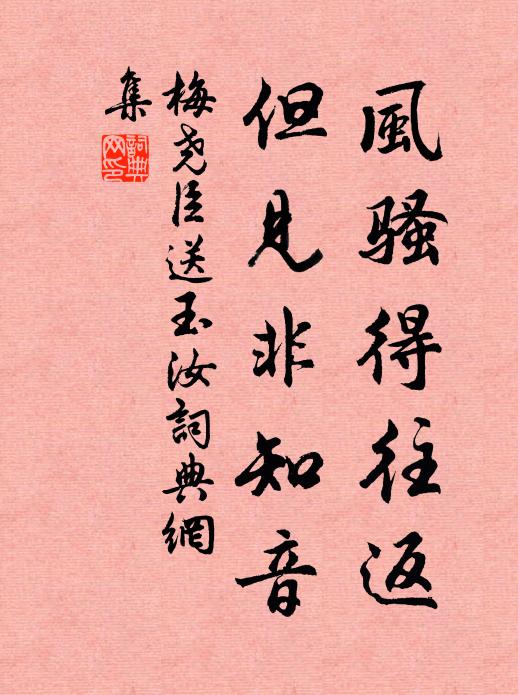 風騷得往返
但見非知音
梅堯臣送玉汝詞典網
集
詞典
网印